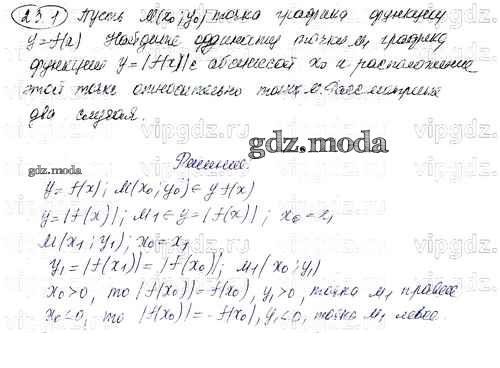 23.1 Пусть M(x₀; y₀) точка графика функции
y=f(x) Найдите ординату точки M₁ графика
функции y=|f(x)| с абсциссой x₀ и расположение
этой точки относительно точки M. Рассмотрите
два случая.
gdz.moda
gdz.moda
Решение.
y=f(x); M(x₀; y₀) ∈ y f(x)
y=|f(x)|; M₁ ∈ y=|f(x)|; x₀=x₁
M(x₁; y₁); x₀=x₁
y₁=|f(x₁)|=|f(x₀)|; M₁(x₀; y₁)
x₀>0, то |f(x₀)|=f(x₀), y₁>0, точка M₁ правее
x₀<0, то |f(x₀)|=-f(x₀), y₁<0, точка M₁ левее.
vipgdz.ru